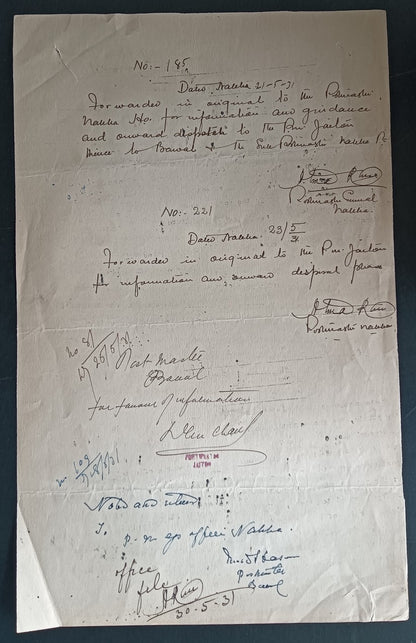 No:- 195
Dated Nabha 21-5-31
Forwarded in original to the Postmaster
Nabha Ho. for information and guidance
and onward dispatch to the P.m. Jaiton
thence to Bawal & the Sub Postmaster Nabha
Atma Ram
Postmaster General
Nabha
No:- 221
Dated Nabha. 23/5/31
Forwarded in original to the P.m. Jaiton
for information and onward disposal please
Atma Ram
Postmaster Nabha
No 81
26/5/31
Post Master
Bawal
for favour of information
POSTMASTER
JAITON
No 109
28/5/31
Noted and returned
To
P. M. G's office Nabha.
Postmaster
Bawal
office
file
30-5-31